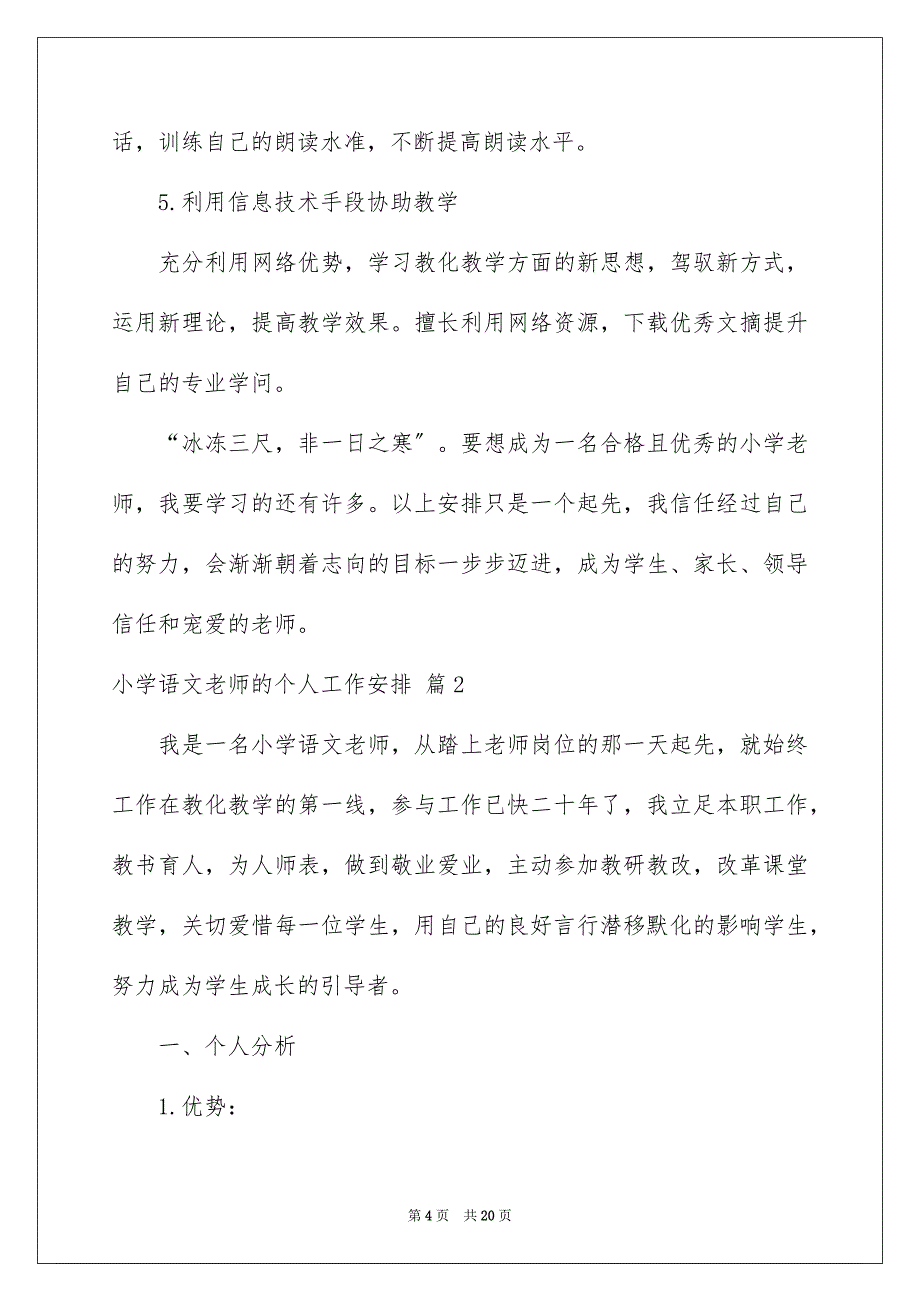 话，训练自己的朗读水准，不断提高朗读水平。
5.利用信息技术手段协助教学
充分利用网络优势，学习教化教学方面的新思想，驾驭新方式，
运用新理论，提高教学效果。擅长利用网络资源，下载优秀文摘提升
自己的专业学问。
“冰冻三尺，非一日之寒〞。要想成为一名合格且优秀的小学老
师，我要学习的还有许多。以上安排只是一个起先，我信任经过自己
的努力，会渐渐朝着志向的目标一步步迈进，成为学生、家长、领导
信任和宠爱的老师。
小学语文老师的个人工作安排 篇2
我是一名小学语文老师，从踏上老师岗位的那一天起先，就始终
工作在教化教学的第一线，参与工作已快二十年了，我立足本职工作，
教书育人，为人师表，做到敬业爱业，主动参加教研教改，改革课堂
教学，关切爱惜每一位学生，用自己的良好言行潜移默化的影响学生，
努力成为学生成长的引导者。
一、个人分析
1.优势：
第 4 页 共 20 页